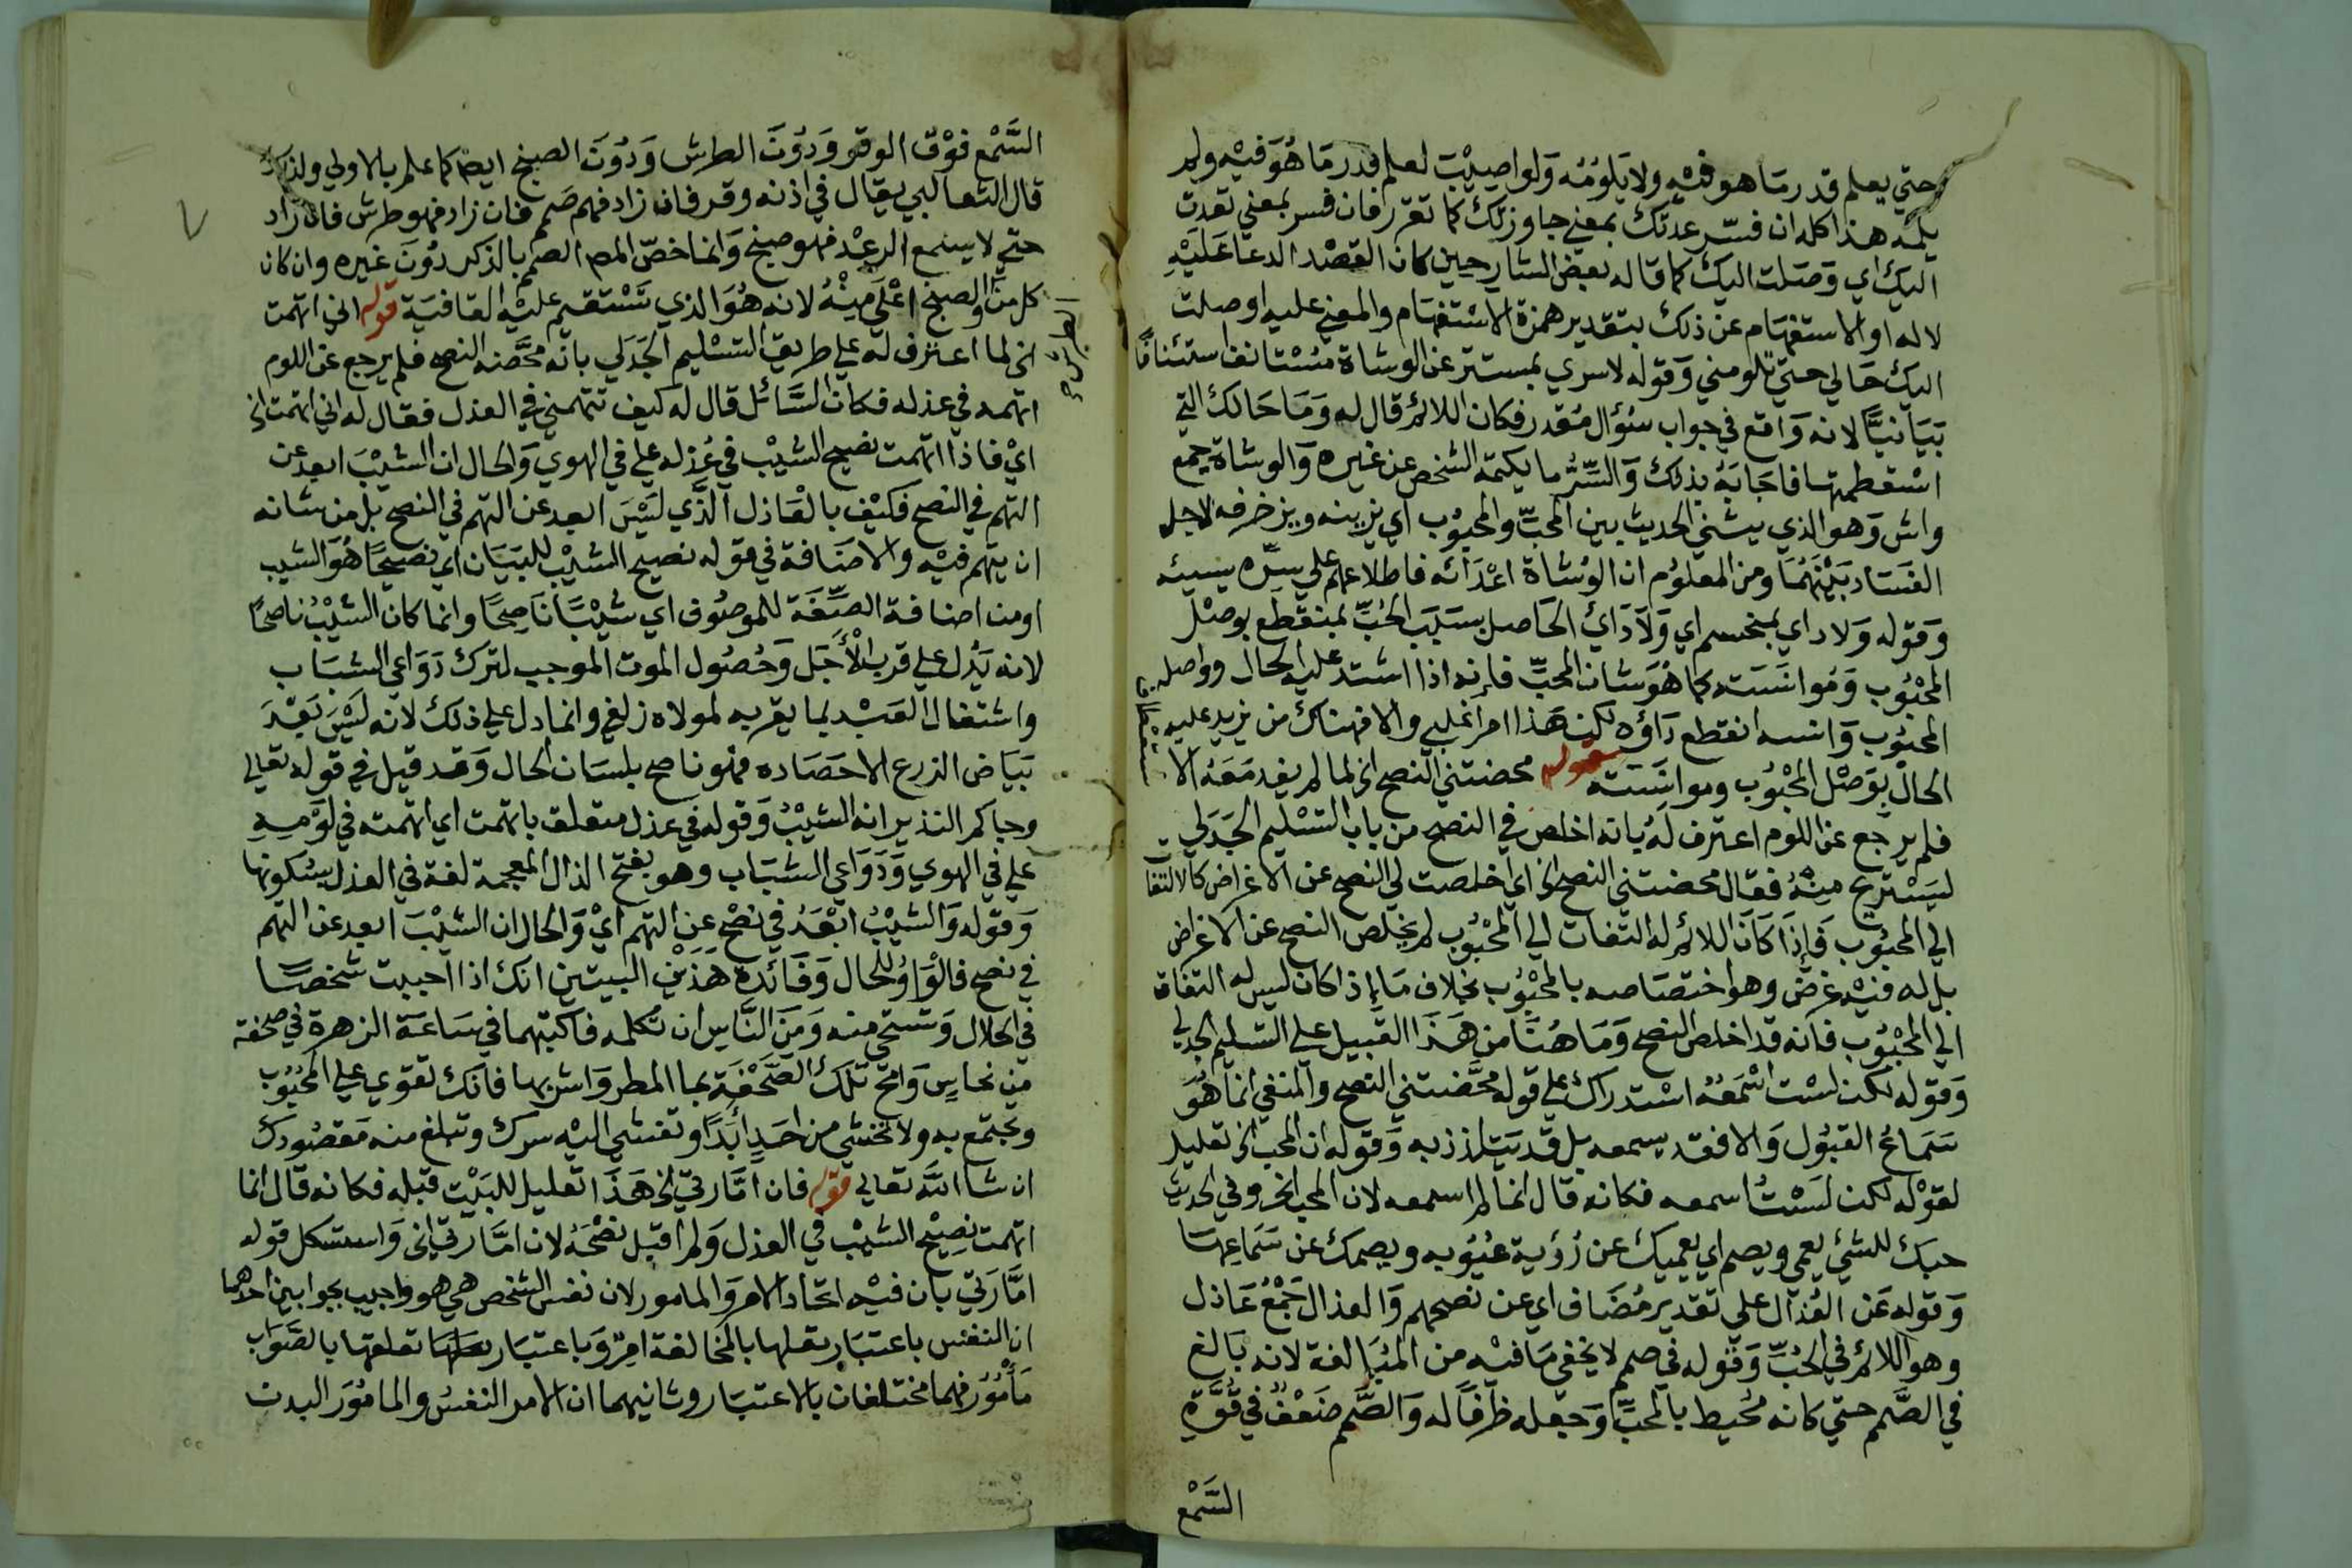 حتي يعلم قدر ما هو فيه ولا يلومه ولو اصيب لعلم قدر ما هو فيه ولم
يلمه هذا كله ان فسر عدتك بمعني جاوزتك كما تقرر فان فسر بمعني تعدت
اليك اي وصلت اليك كما قاله بعض الشارحين كان القصد الدعا عليه
لا له او الاستفهام عن ذلك بتقدير همزة الاستفهام والمعني عليه اوصلت
اليك حالي حتي تلومني وقوله لا سري بمستتر عن الوشاة مستانف استئنافا
بيانيا لانه واقع في جواب سؤال مقدر فكان اللائم قال له وما حالك التي
فاجابه بذلك والسر ما يكتمه الشخص عن غيره والوشاة جمع
واش وهو الذي يشي الحديث بين المحب والمحبوب اي يزينه ويزخرفه لاجل
الفساد بينهما ومن المعلوم ان الوشاة اعدائه فاطلاعهم علي سره يسيئه
وقوله ولا داي بمنحسم اي ولا دائ الحاصل بسبب الحب بمنقطع بوصل
المحبوب ومؤانسته كما هو شان المحب فانه اذا اشتد عليه الحال وواصله
المحبوب وانسه انقطع داؤه لكن هذا امر اغلبي والا فهناك من يزيد عليه
الحال بوصل المحبوب ومواسته قوله محضتني النصح الخ لما لم يفد معه الا
فلم يرجع عن اللوم اعترف له بانه اخلص في النصح من باب التسليم الجدلي
ليستريح منه فقال محضتني النصح الخ اي اخلصت لي النصح عن الاغراض كالالتفات
الي المحبوب فاذا كان اللائم له التفات الي المحبوب لم يخلص النصح عن الاغراض
بل له فيه غرض وهو اختصاصه بالمحبوب بخلاف ما اذا كان ليس له التفات
الي المحبوب فانه قد اخلص النصح وما هنا من هذا القبيل علي التسليم الجدلي
وقوله لكن لست اسمعه استدراك علي قوله محضتني النصح والمنفي انما هو
سماع القبول والا فقد يسمعه بل قد يتلذذ به وقوله ان المحب الخ تعليل
لقوله لكن لست اسمعه فكانه قال انما لم اسمعه لان المحب الخ وفي الحديث
حبك للشئ يعمي ويصم اي يعميك عن رؤية عيوبه ويصمك عن سماعها
وقوله عن العذال علي تقدير مضاف اي عن نصحهم والعذال جمع عاذل
وهو اللائم في الحب وقوله في صمم لا يخفي ما فيه من المبالغة لانه بالغ
في الصمم حتي كانه محيط بالمحب وجعله ظرفا له والصمم ضعف في قوة
السمع
السمع فوق الوقر ودون الطرش ودون الصبخ ايضا كما علم بالاولي ولذلك
قال الثعالبي يقال في اذنه وقر فان زاد فهم صمم فان زاد فهو طرش فان زاد
حتي لا يسمع الرعد فهو صبخ وانما خص المص الصمم بالذكر دون غيره وان كان
كل من الصبخ اعلي منه لانه هو الذي تستقيم عليه القافية قوله اني اتهمت
الخ لما اعترف له علي طريق التسليم الجدلي بانه محضه النصح فلم يرجع عن اللوم
اتهمه في عذله فكان السائل قال له كيف تتهمني في العذل فقال له اني اتهمت الخ
اي فاذا اتهمت نصيح الشيب في عذله علي في الهوي والحال ان الشيب ابعد عن
التهم في النصح فكيف بالعاذل الذي ليس ابعد عن التهم في النصح بل من شانه
ان يتهم فيه والاضافة في قوله نصيح الشيب للبيان اي نصيحا هو الشيب
او من اضافة الصفة للموصوف اي شيبا ناصحا وانما كان الشيب ناصحا
لانه يدل علي قرب الاجل وحصول الموت الموجب لترك دواعي الشباب
واشتغال العبد بما يقربه لمولاه زلفي وانما دل علي ذلك لانه ليس بعد
بياض الزرع الا حصاده فهو ناصح بلسان الحال وقد قيل في قوله تعالي
وجاكم النذير انه الشيب وقوله في عذل متعلق باتهمت اي اتهمته في لومه
علي في الهوي ودواعي الشباب وهو بفتح الذال المعجمة لغة في العذل بسكونها
وقوله والشيب ابعد في نصح عن التهم اي والحال ان الشيب ابعد عن التهم
في نصح فالواو للحال وفائدة هذين البيتين انك اذا احببت شخصا
في الحلال وتستحي منه ومن الناس ان تكلمه فاكتبهما في ساعة الزهرة في صحفة
من نحاس وامح تلك الصحفة بما المطر واشربها فانك تقوي علي المحبوب
وتجتمع به ولا تخشي من احد ابدا وتفشي اليه سرك وتبلغ منه مقصودك
ان شا الله تعالي قوله فان امارتي الخ هذا تعليل للبيت قبله فكانه قال انما
اتهمت نصيح الشيب في العذل ولم اقبل نصحه لان امارتي الخ واستشكل قوله
امارتي بان فيه اتحاد الامر والمامور لان نفس الشخص هي هو واجيب بجوابين احدهما
ان النفس باعتبار تعلقها بالمخالفة امر وباعتبار تعلقها بالصواب
مأمور فهما مختلفان بالاعتبار وثانيهما ان الامر النفس والمامور البدن